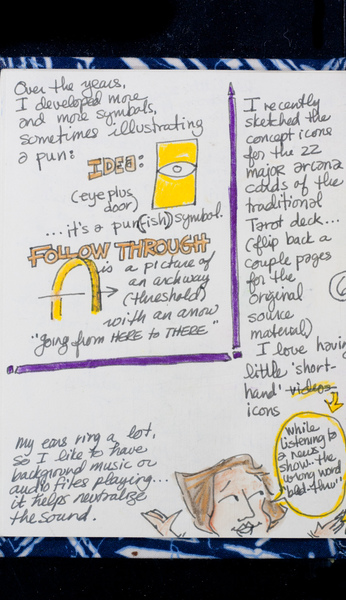 Over the years,
I developed more
and more symbols,
sometimes illustrating
a pun:
IDEA:
(eye plus
door)
...it's a pun(ish) symbol.
FOLLOW THROUGH
is a picture of
an archway
(threshold)
with an arrow
"going from HERE to THERE"
I recently
sketched the
concept icons
for the 22
major arcana
cards of the
traditional
Tarot deck...
(flip back a
couple pages
for the
original
source
material)
I love having
little 'short-
hand' videos
icons
My ears ring a lot,
so I like to have
background music or
audio files playing...
it helps neutralize
the sound.
while
listening to
a news
show. the
wrong word
"bled-thru"